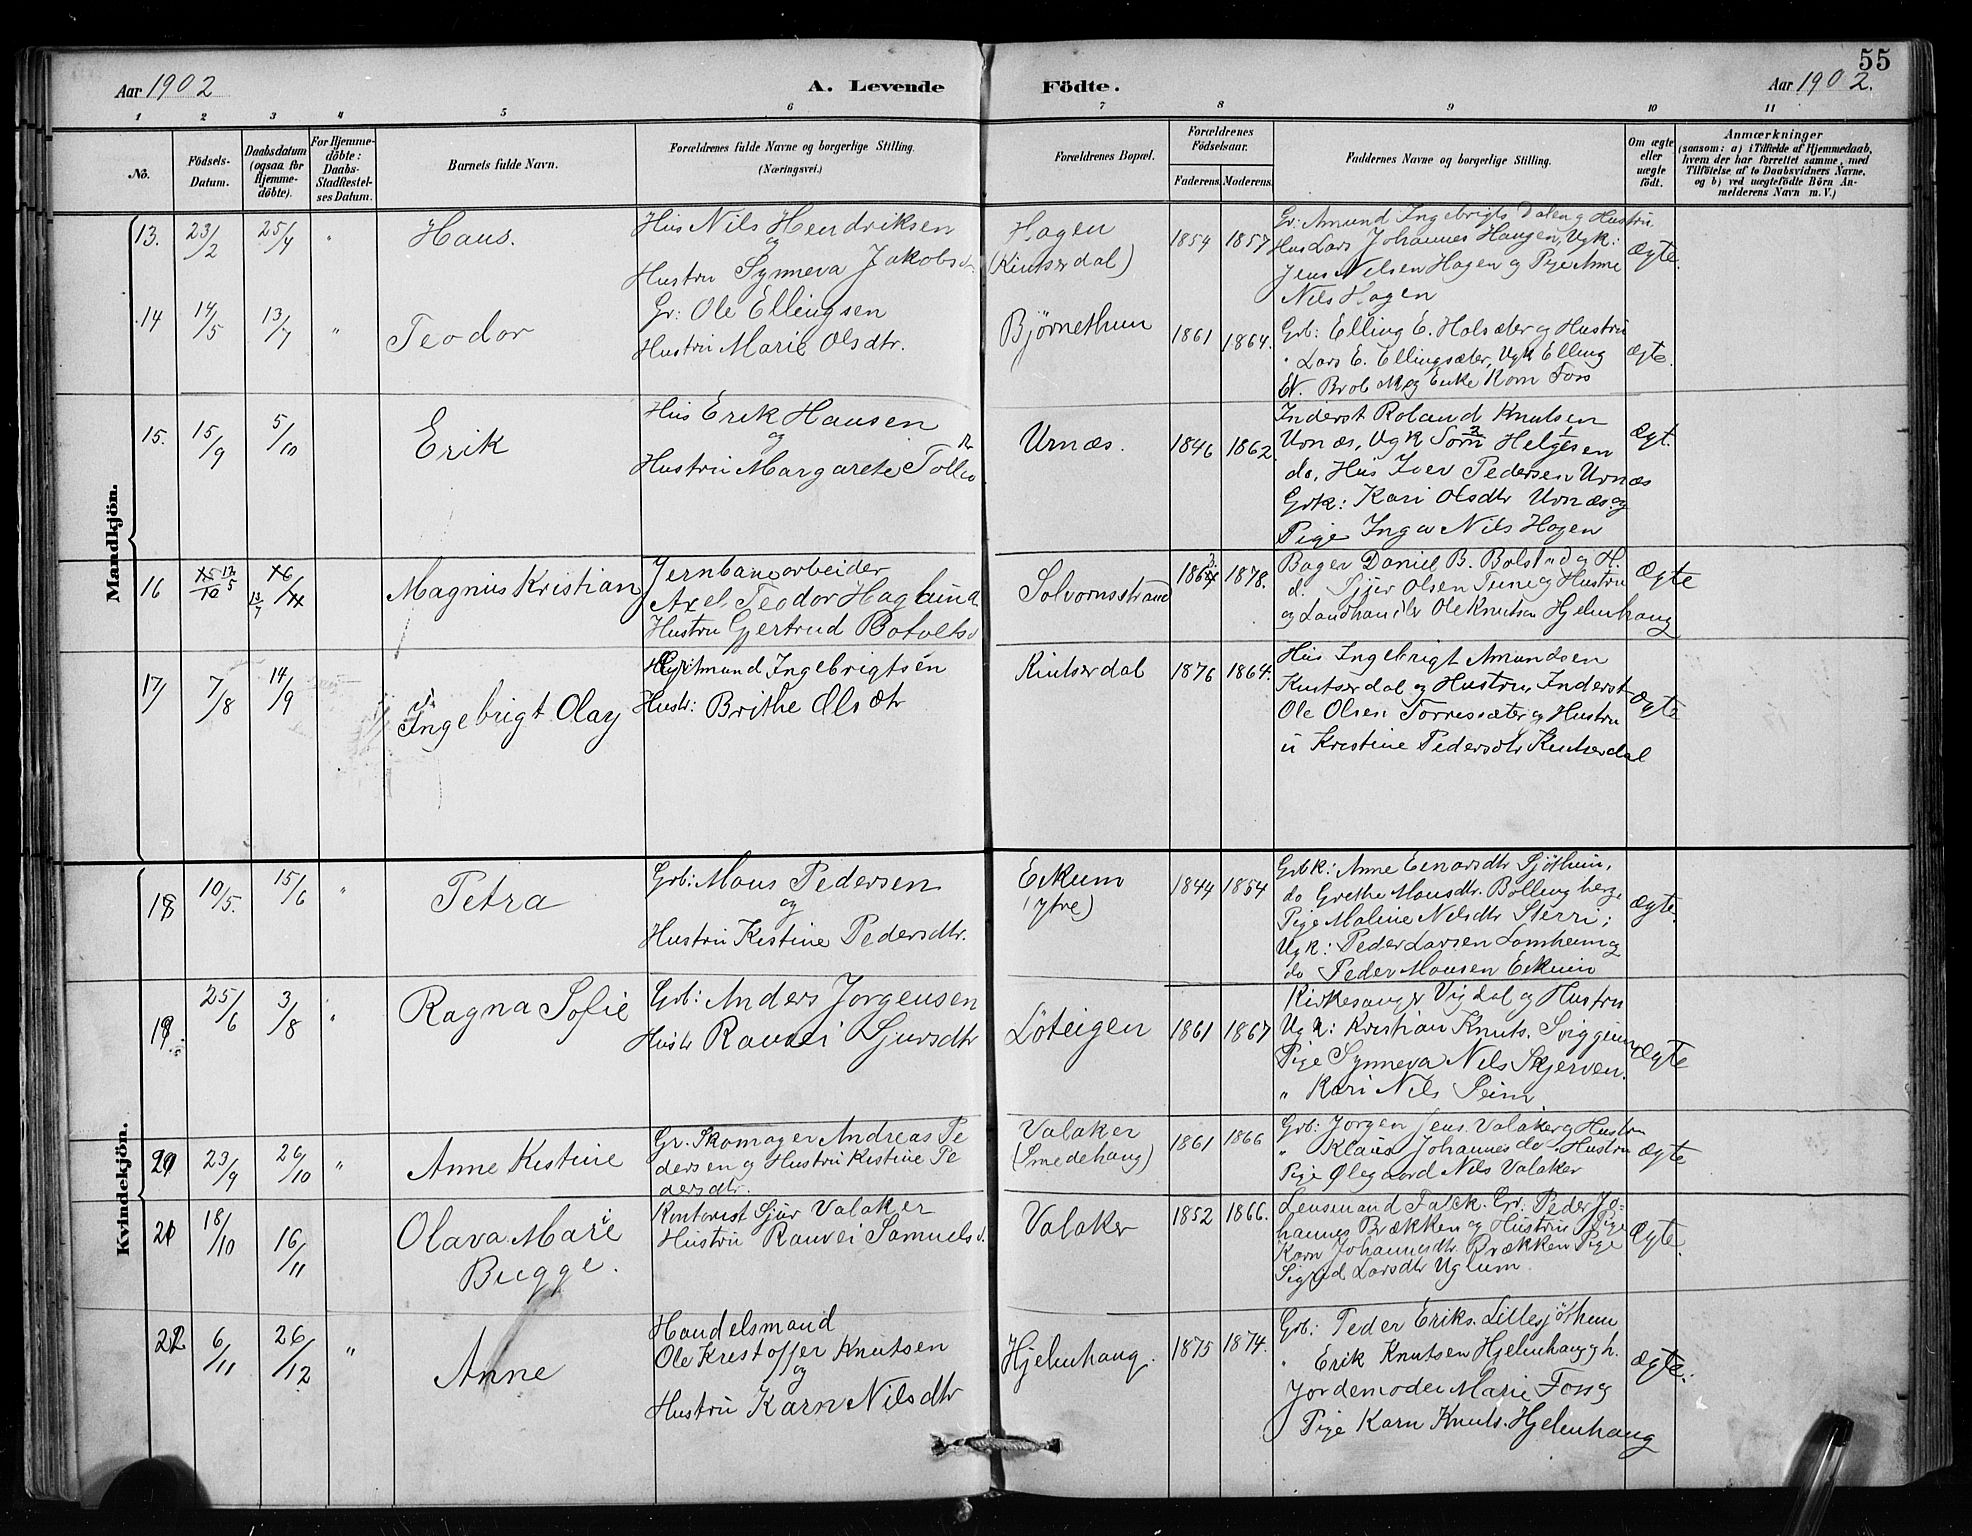 55
Aar 1902
A. Levende Födte.
Aar 1902.
1 2 3 4 5 6 7 8 9 10 11
No.
Födsels-
Datum.
Daabsdatum
(ogsaa for
Hjemme-
döbte).
For Hjemme-
döbte:
Daabs-
Stadfæstel-
ses Datum.
Barnets fulde Navn.
Forældrenes fulde Navne og borgerlige Stilling.
(Næringsvei.)
Forældrenes Bopæl.
Forældrenes
Födselsaar.
Faderens. Moderens.
Faddernes Navne og borgerlige Stilling.
Om ægte
eller
uægte
födt.
Anmærkninger
(saasom: a) i Tilfælde af Hjemmedaab,
hvem der har forrettet samme, med
Tilföielse af to Daabsvidners Navne,
og b) ved uægtefödte Börn An-
melderens Navn m. V.)
Mandkjön.
13. 23/2 25/4 " Hans.
Hus Nils Hendriksen
og
Hustru Synneva Jakobsd.
Hagen
(Kinserdal)
1854 1857
Gr: Amund Ingebrigts Dalen og Hustru
Hus Lars Johannes Haugen, Ugk:
Jens Nilsen Hagen og Pige Anne
Nils Hagen
ægte.
14 14/5 13/7 " Teodor
Gr: Ole Ellingsen
Hustru Marie Olsdtr.
Björnethun
1861 1864.
Grb: Elling E. Molsæter og Hustru
" Lars E. Ellingsæter, Ugk Elling
Foss
ægte.
15. 15/9 5/10 Erik
Hus Erik Hansen
og
Hustru Margarete
Urnæs.
1846 1862
Inderst Roland Knutsen
Urnæs, Ugk Sörn Helgesen
do, Hus Iver Pedersen Urnæs
Grk: Kari Olsdtr Urnæs og
Pige Inga Nils Hagen
ægt.
16 Magnus Kristian
Jernbanearbeider
Axel Teodor Haglund
Hustru Gjertrud Botolfsd
Solvornsstrand
1878.
Bager Daniel B. Bolstad og H.
d. Olsen Tune og Hustru
og Landhandler Ole Knutsen Hjelmhaug
Ægte
17 7/8 14/9 Ingebrigt Olay
Amund Ingebrigtsen
Hustr: Brithe Olsdtr
Kinserdal
1876 1864.
Hus Ingebrigt Amundsen
Kinserdal og Hustru, Inderst
Ole Olsen Torressæter og Hustru
u Kristine Pedersdtr Kinserdal
ægte
Kvindekjön.
18 10/5. 15/6 " Petra
Grb: Mons Pedersen
og
Hustru Kestine Pedersdtr.
Eikum
(ytre)
1844 1854
Gbk: Anne Einarsdtr Sjöthun,
do Grethe Monsdtr. Bollingberg,
Pige Maline Nilsdtr Sterri;
Ugk: Peder Larsen Lomheim og
do Peder Monsen Eikum
ægte.
19. 25/6 3/8 " Ragna Sofie
Grb: Anders Jorgensen
Hustr Ranvei Sjursdtr
Löteigen
1861 1867
Kirkesanger Vigdal og Hustru
Ugk: Kristian Knuts. Sviggum
Pige Synneva Nils Skjerven.
" Kari Nils Peim
ægte
20 23/9 26/10 " Anne Kestine
Gr. Skomager Andreas Pe
dersen og Hustru Kestine Pe
dersdtr.
Valaker
(Smedehaug)
1861 1866
Grb: Jorgen Jens. Valaker og Hustru
" Klaus Johannes do, Hustru
Pige Ölegaard Nils Valaker
ægte
21 18/10 16/11 Olava Marie
Bugge.
Kontorist Sjur Valaker
Hustru Ranvei Samuelsd.
Valaker
1852 1866.
Lensmand Falck. Gr. Peder Jo-
hannes Brækken og Hustru Pige
Karn Johannesdtr. Brækken Pige
Sigrid Larsdtr Uglum
Ægte.
22 6/11 26/12 " Anne
Handelsmand
Ole Kristoffer Knutsen
og
Hustru Karn Nilsdtr
Hjelmhaug.
1875 1874.
Grb: Peder Eriks. Lillesjöthun
" Erik Knutsen Hjelmhaug og h.
Jordemoder Marie Foss og
Pige Karn Knuts. Hjelmhaug
ægte.